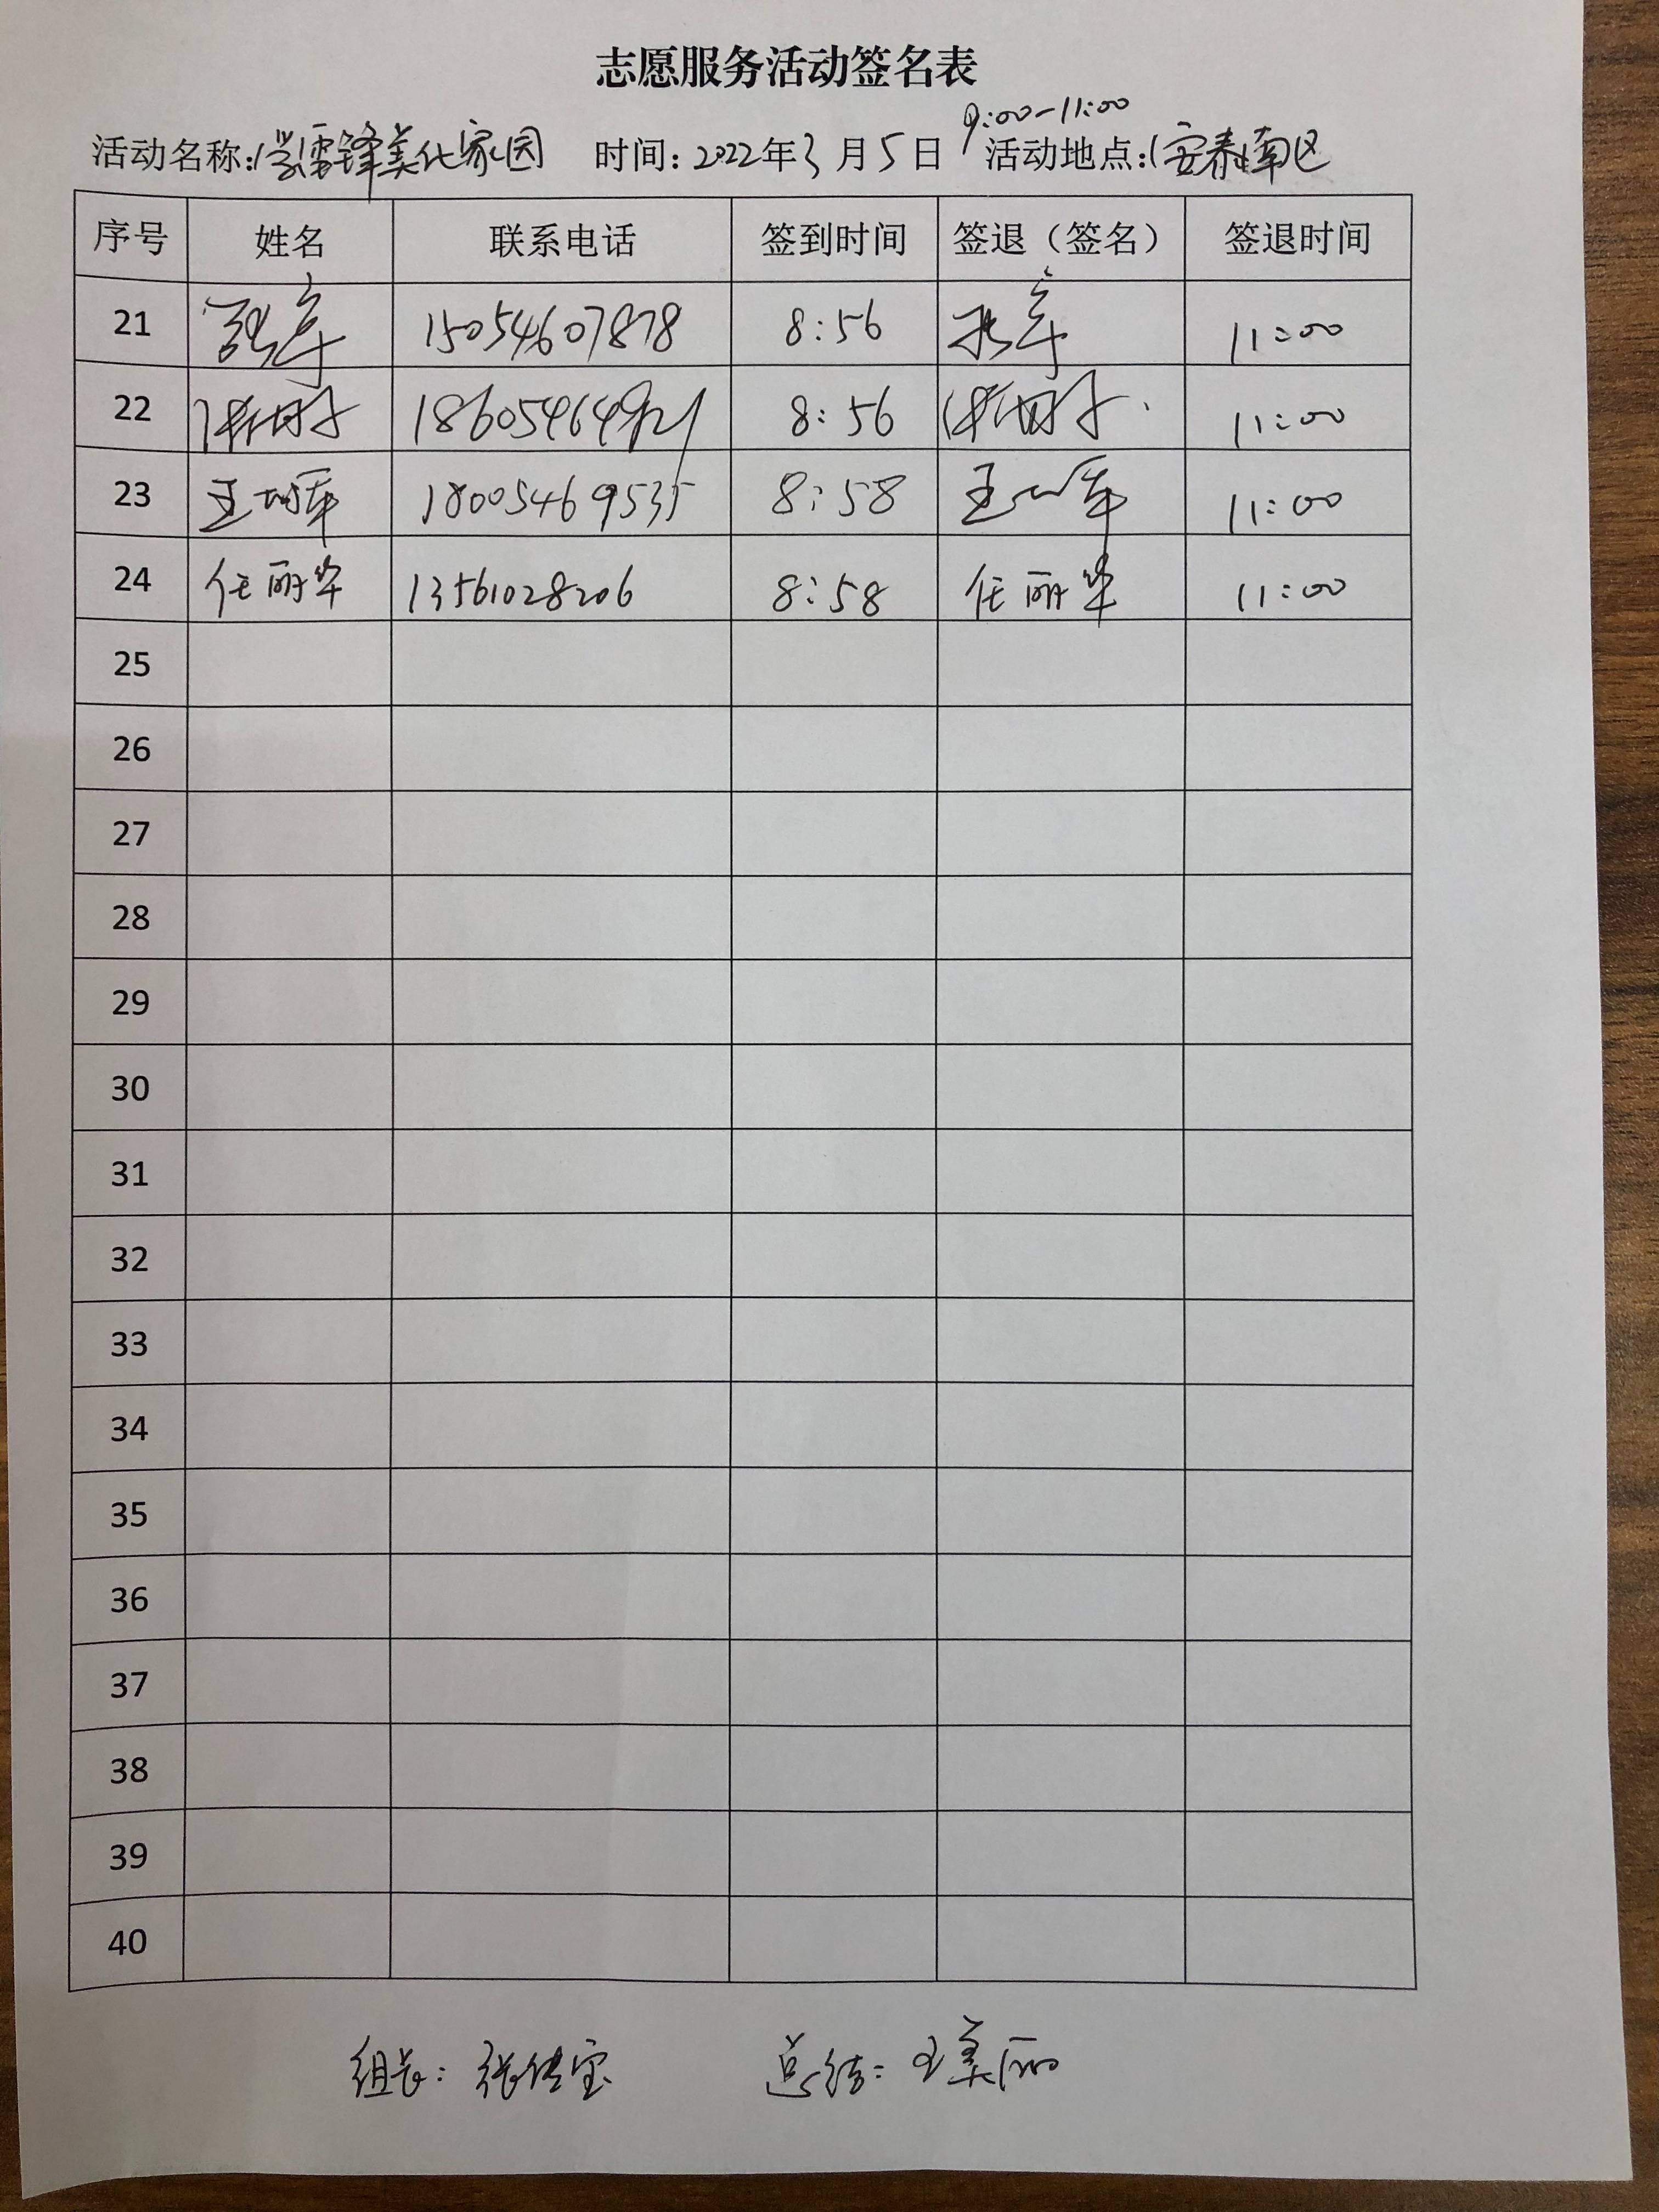 志愿服务活动签名表
9:00-11:00
活动名称:学雷锋美化家园 时间:2022年3月5日 活动地点:安泰南区
序号 姓名 联系电话 签到时间 签退（签名） 签退时间
21 15054607878 8:56 11:00
22 18605464921 8:56 11:00
23 王 军 18005469535 8:58 王 军 11:00
24 任丽华 13561028206 8:58 任丽华 11:00
25
26
27
28
29
30
31
32
33
34
35
36
37
38
39
40
组长: 张佳宝 总结: 王美丽